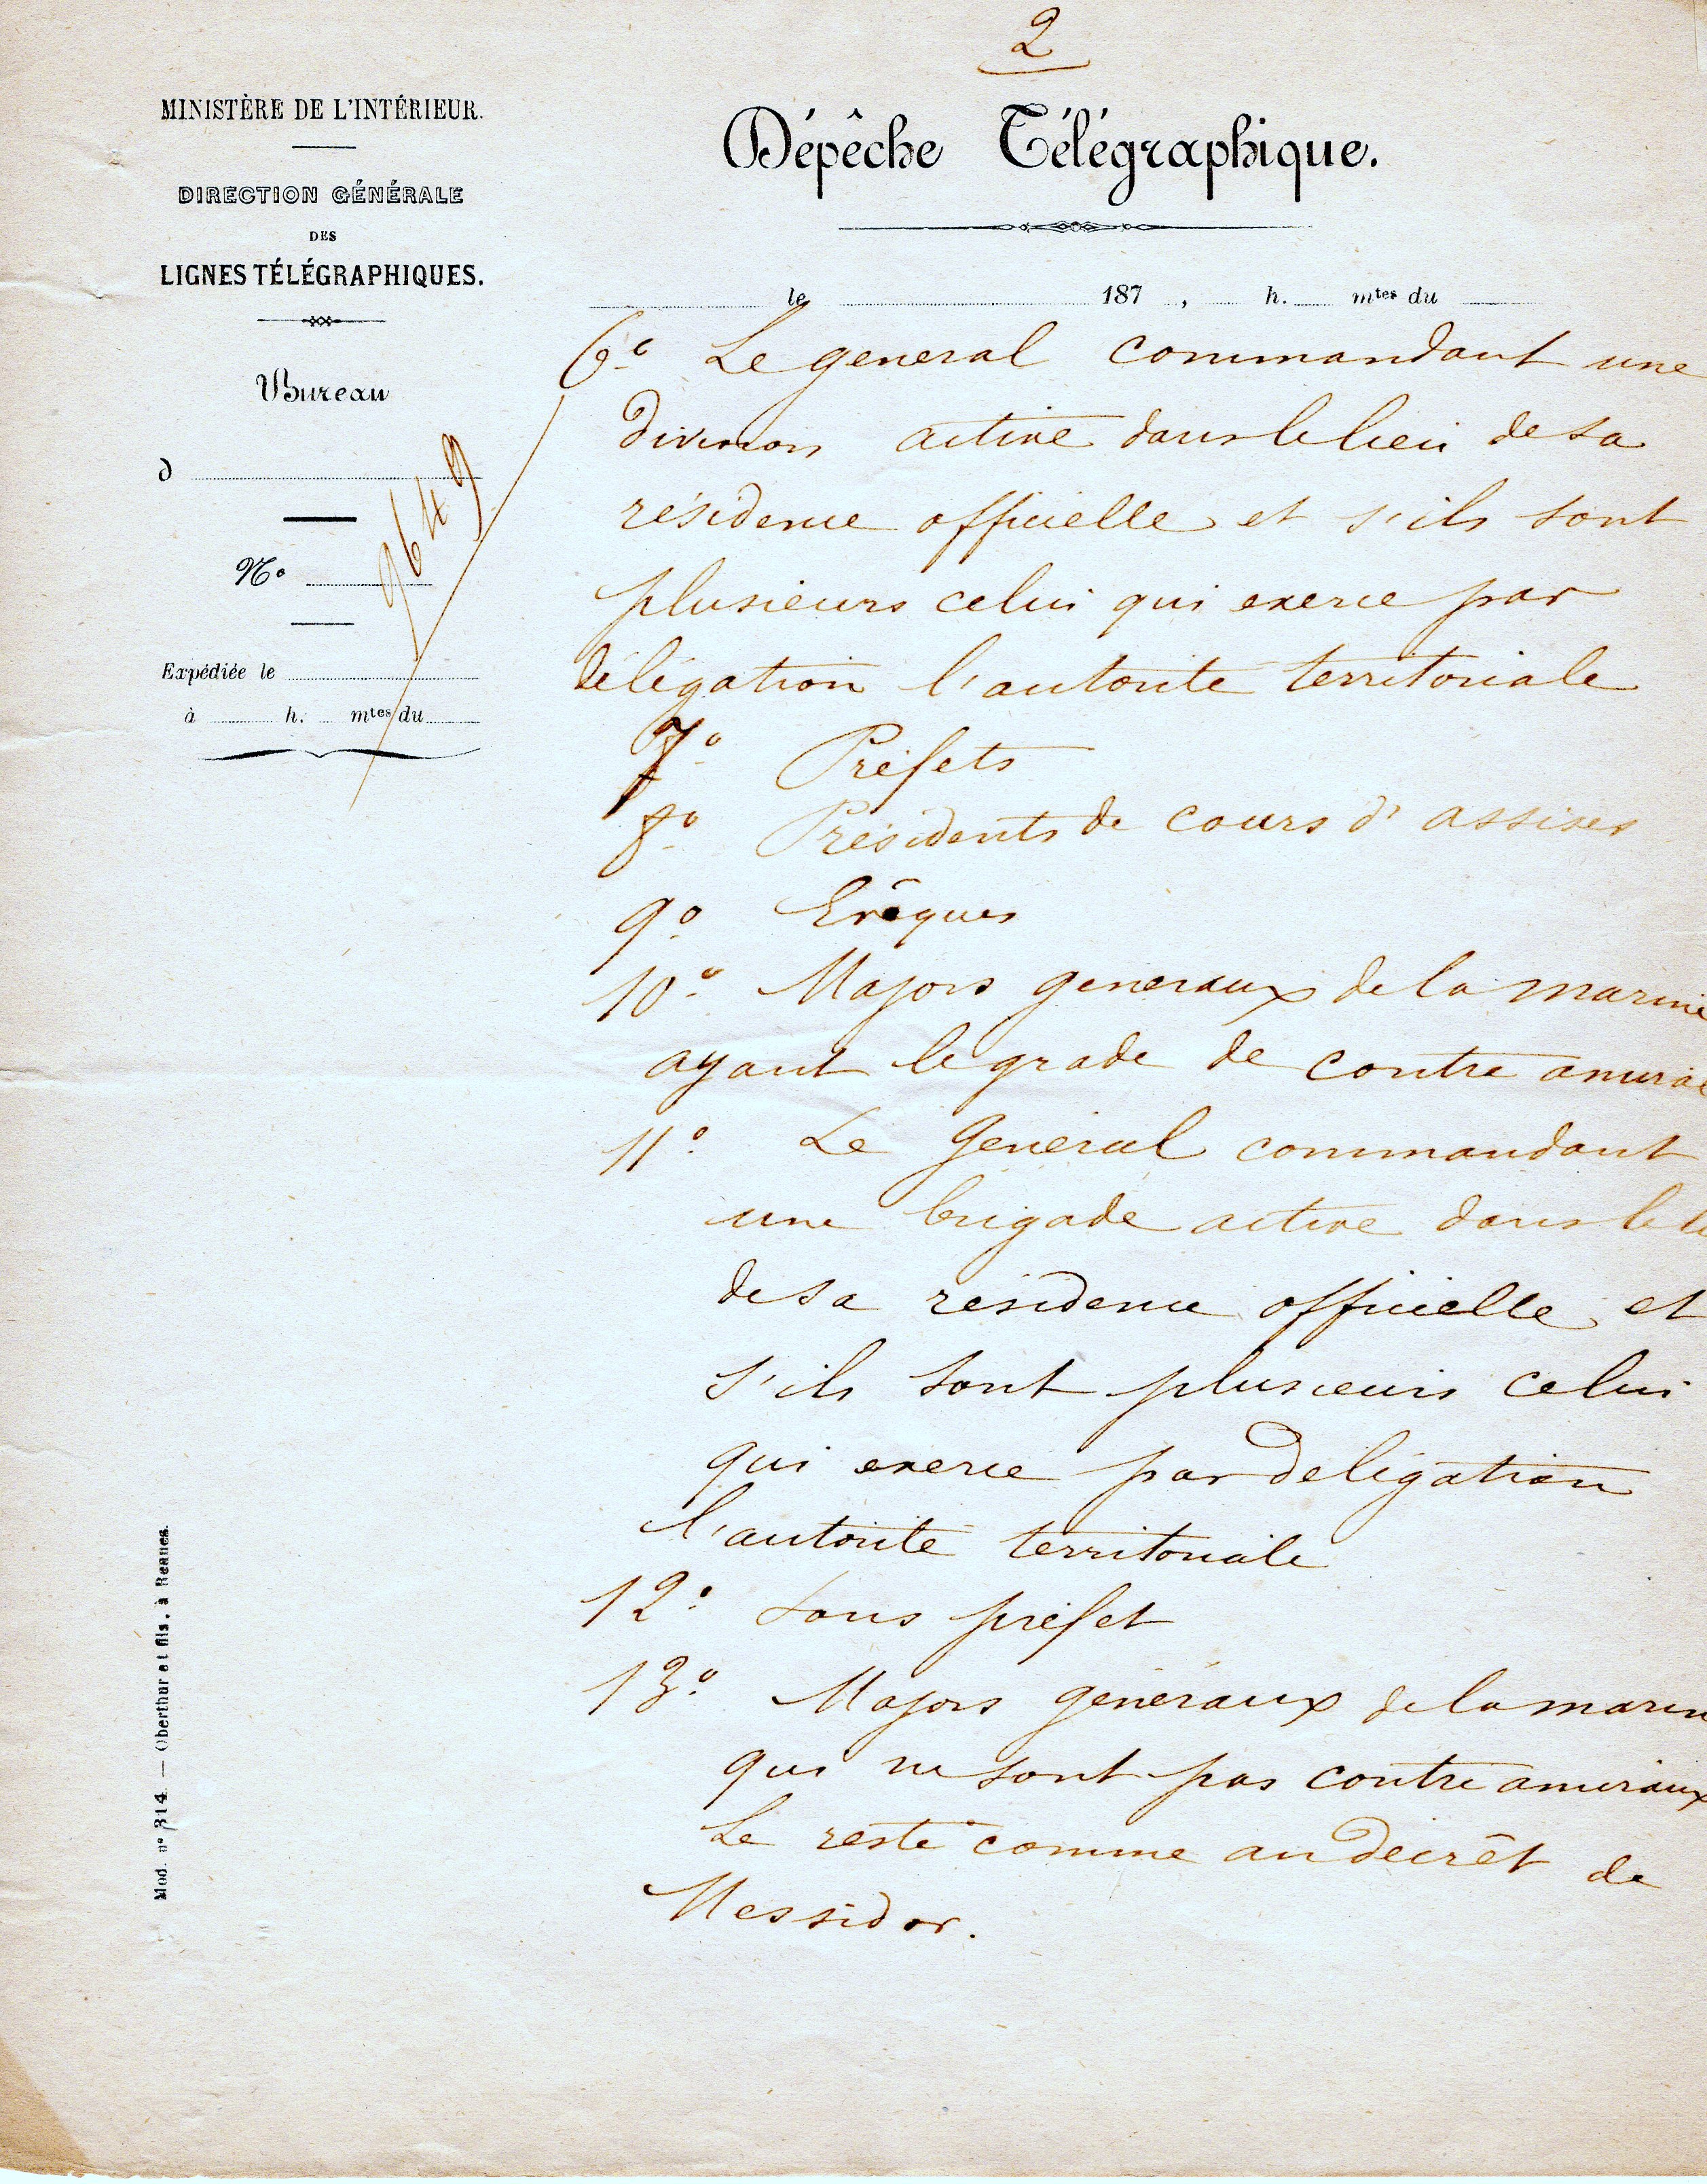 2
MINISTÈRE DE L'INTÉRIEUR.
DIRECTION GÉNÉRALE
DES
LIGNES TÉLÉGRAPHIQUES.
Bureau
d
9649
N°
Expédiée le
à h. mtes du
Dépêche Télégraphique.
le 187 , h. mtes du
6° Le general commandant une
division active dans le lieu de sa
résidence officielle et s'ils sont
plusieurs celui qui exerce par
délégation l'autorite territoriale
7° Préfets
8° Présidents de cours d'assises
9° Evêques
10° Majors generaux de la marine
ayant le grade de contre amiral
11° Le Général commandant
une brigade active dans le
de sa résidence officielle et
s'ils sont plusieurs celui
qui exerce par délégation
l'autorité territoriale
12° Sous préfet
13° Majors généraux de la marin
qui ne sont pas contre amiraux
Le reste comme au décrêt de
Messidor.
Mod. n° 314. — Oberthur et fils, à Rennes.